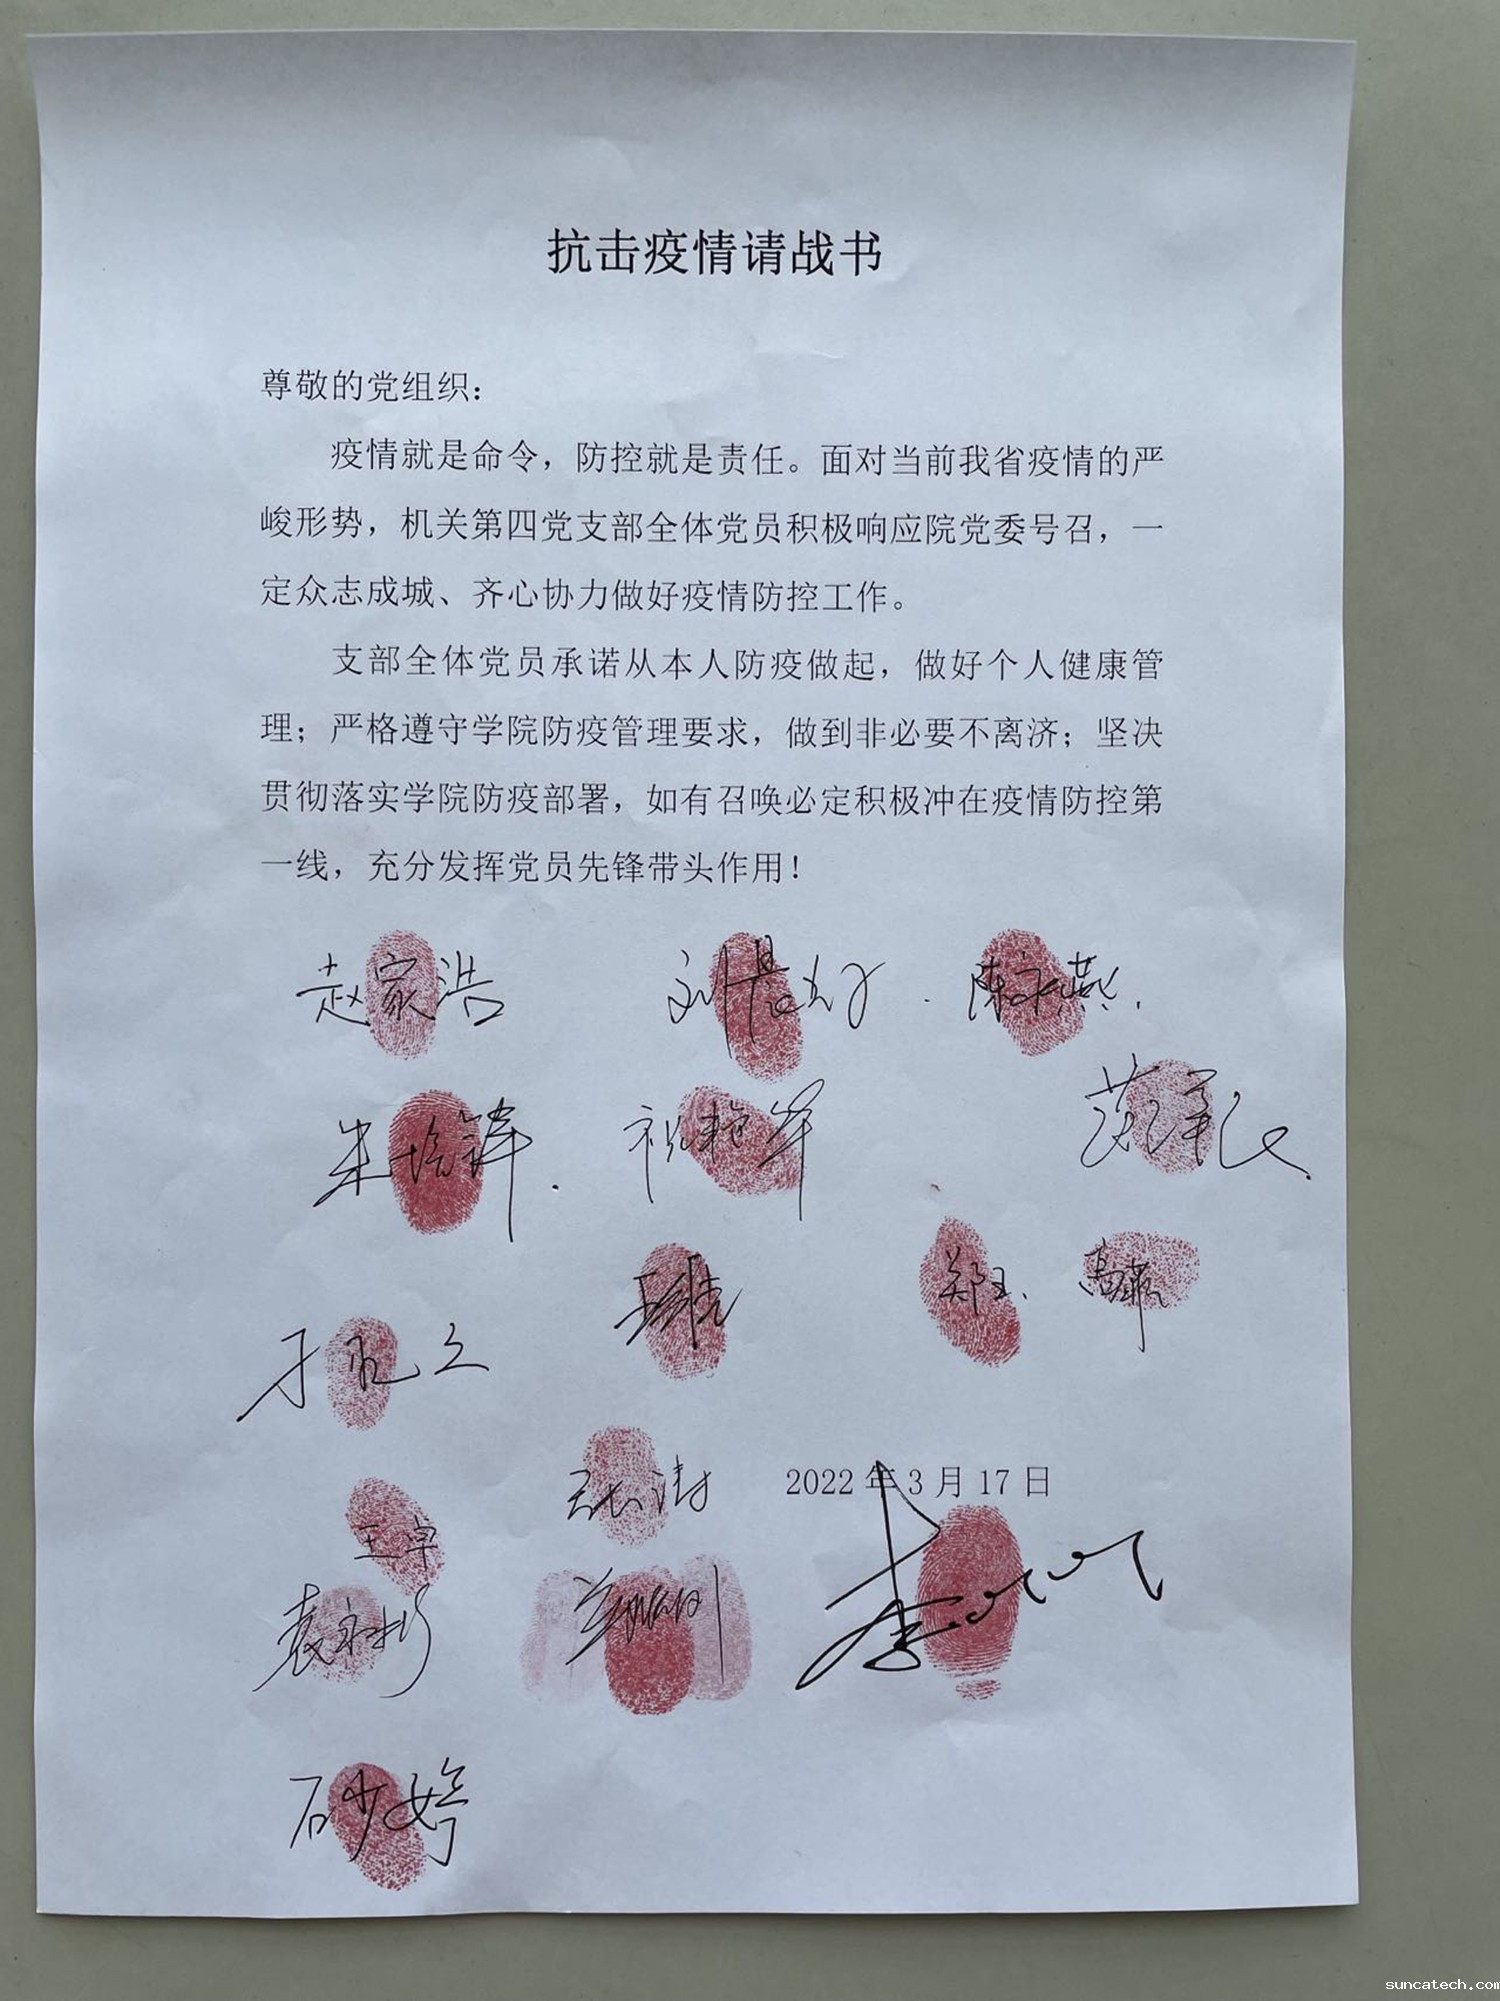 抗击疫情请战书
尊敬的党组织：
疫情就是命令，防控就是责任。面对当前我省疫情的严
峻形势，机关第四党支部全体党员积极响应院党委号召，一
定众志成城、齐心协力做好疫情防控工作。
支部全体党员承诺从本人防疫做起，做好个人健康管
理；严格遵守学院防疫管理要求，做到非必要不离济；坚决
贯彻落实学院防疫部署，如有召唤必定积极冲在疫情防控第
一线，充分发挥党员先锋带头作用！
赵家浩 陈永燕
朱培锋 祝艳军
郑玉
张涛 2022年3月17日
王卓
袁永彬
suncatech.com